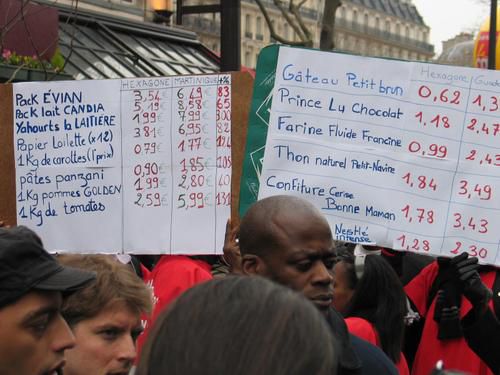 HEXAGONE MARTINIQUE %
Pack ÉVIAN 3,54€ 6,49€ 83
Pack lait CANDIA 5,19€ 8,58€ 65
Yahourts la LAITIÈRE 1,99€ 7,99€
Papier toilette (x12) 3,81€ 6,95€ 82
1Kg de carottes (1er prix) 0,79€ 1,77€
pâtes panzani 0,90€ 1,85€
1Kg pommes GOLDEN 1,99€ 2,80€
1Kg de tomates 2,59€ 5,99€
Hexagone
Gâteau Petit brun 0,62
Prince Lu Chocolat 1,18
Farine Fluide Francine 0,99
Thon naturel Petit-Navire 1,84 3,49
Confiture Cerise
Bonne Maman 1,78 3,43
Nescafé
intense 1,28 2,30